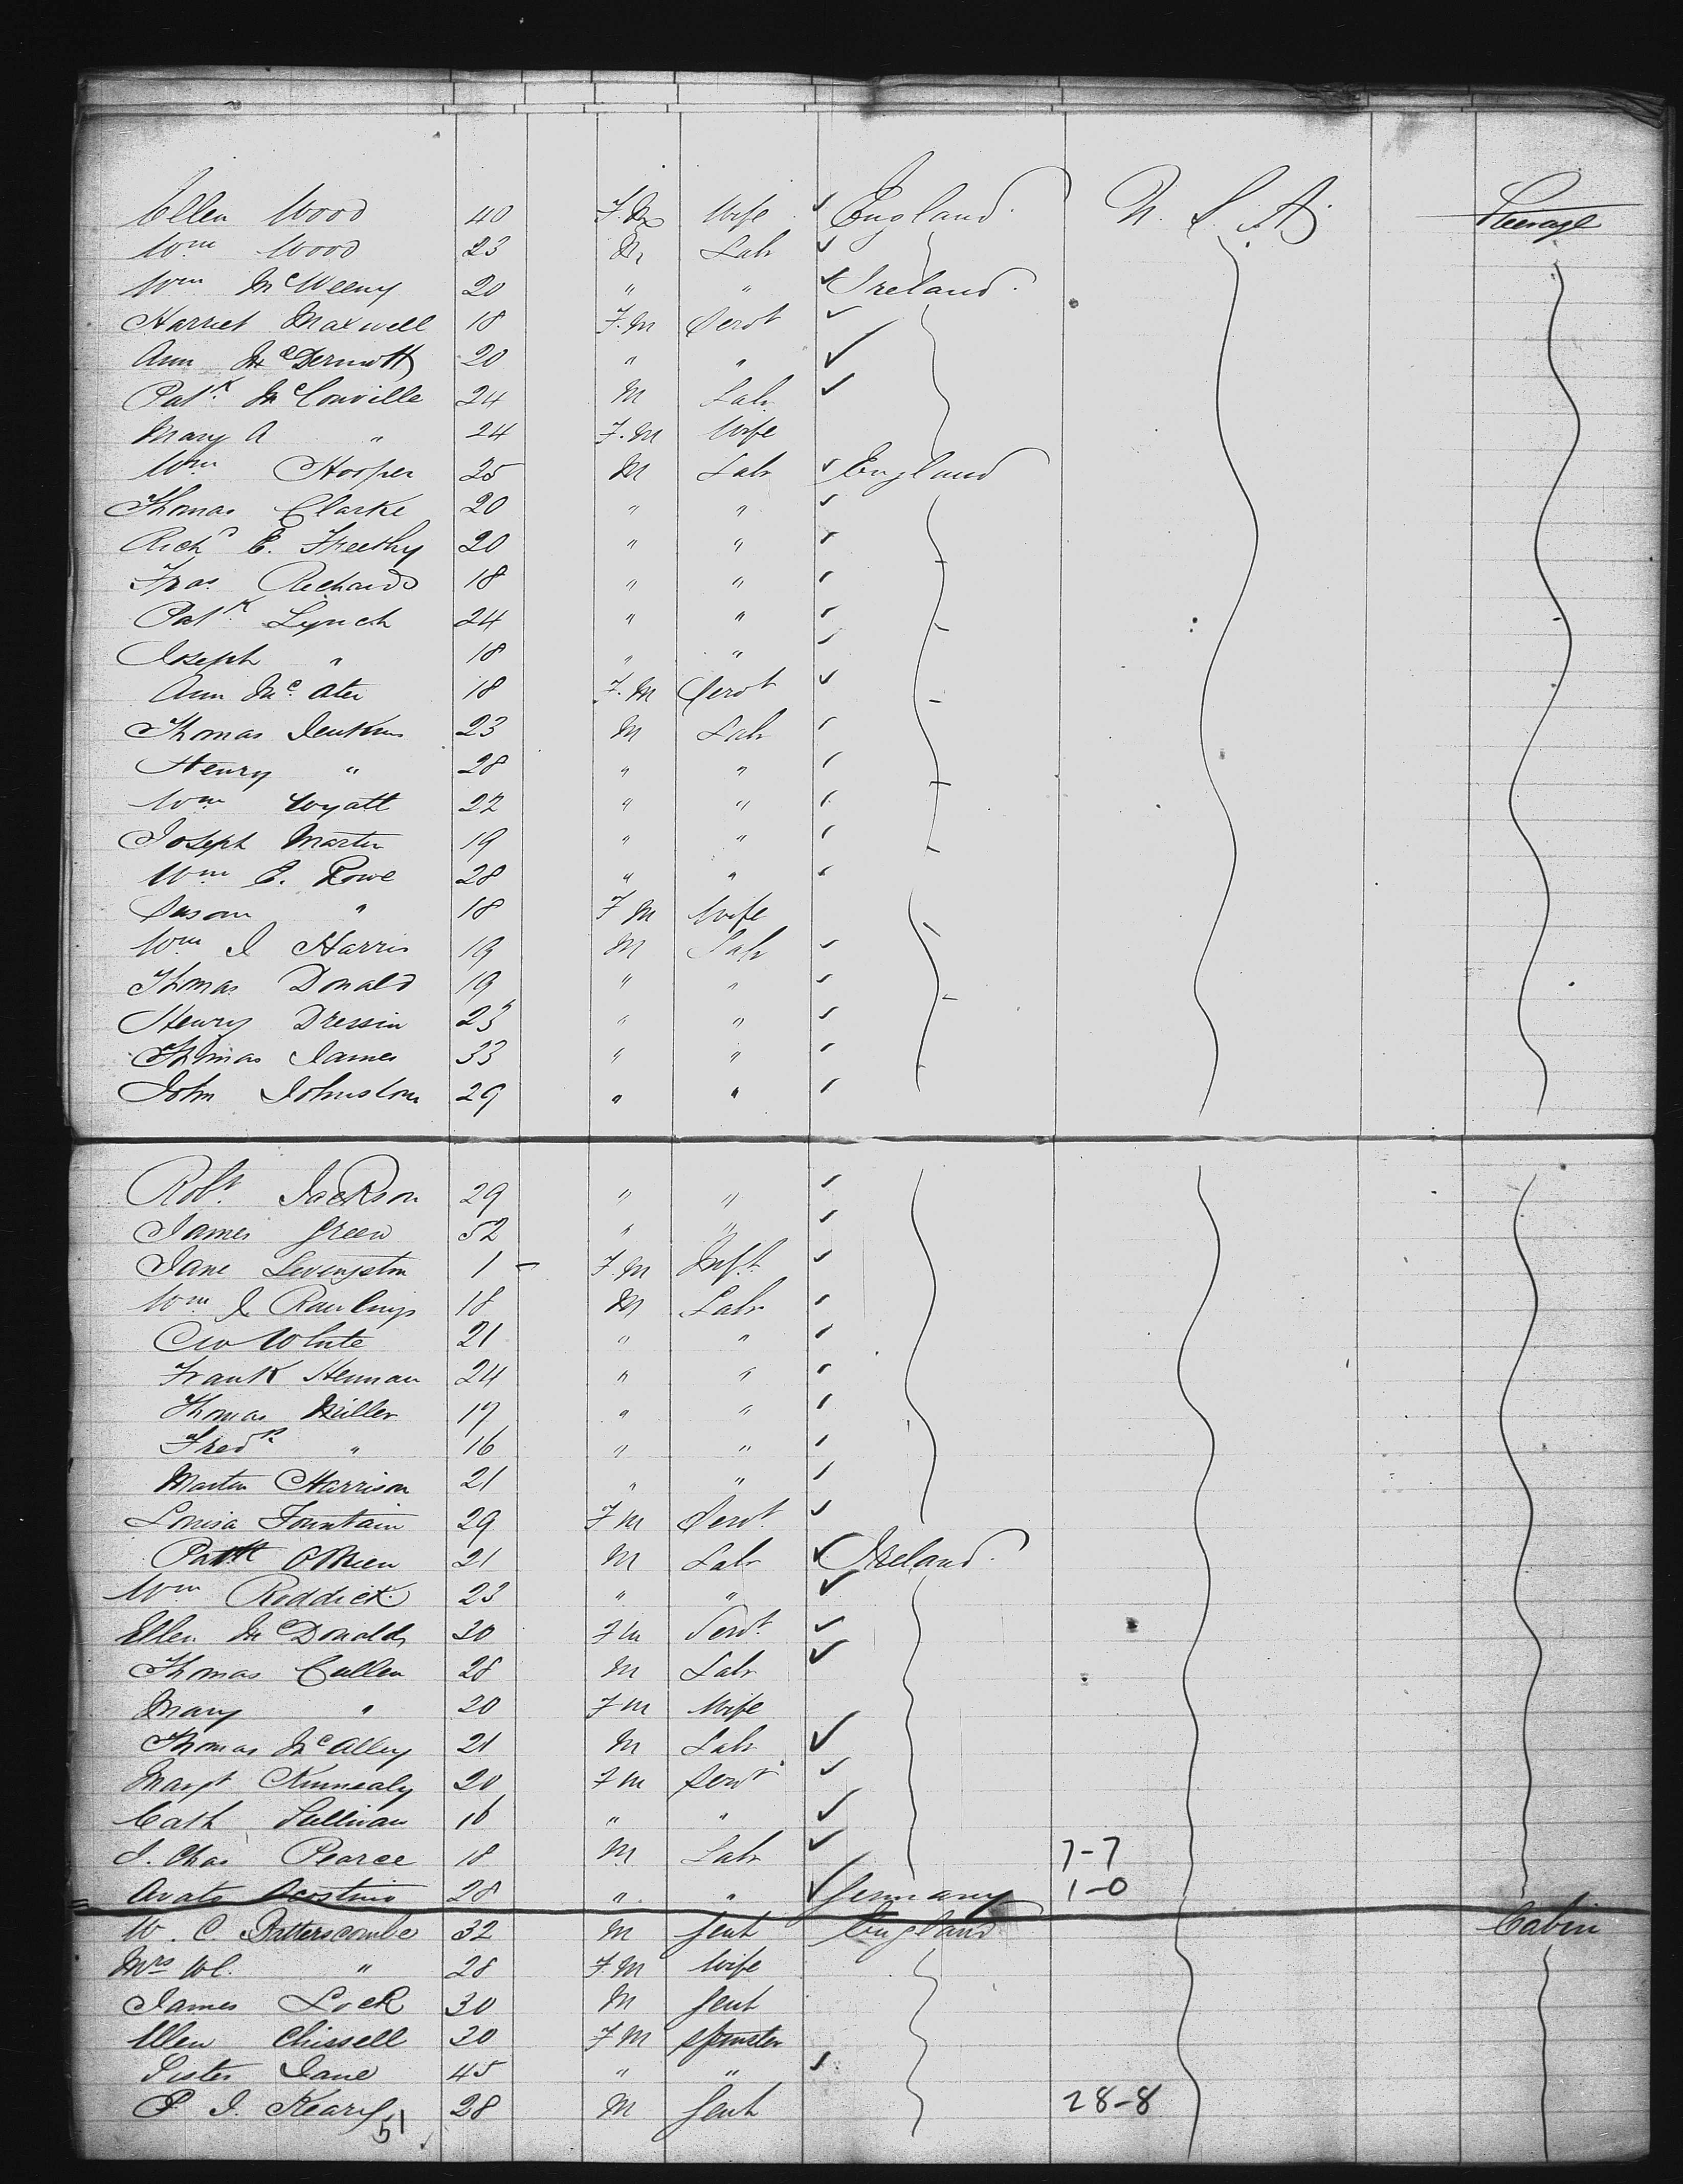 Ellen Wood 40 F. M Wife ✓ England. U. S. A. Steerage
Wm Wood 23 M Labr ✓
Wm McWeeny 20 " " ✓ Ireland.
Harriet Maxwell 18 F. M Servt ✓
Ann McDermott 20 " " ✓
Patk McConville 24 M Labr ✓
Mary A " 24 F. M Wife
Wm Hooper 25 M Labr ✓ England
Thomas Clarke 20 " " ✓
Richd E. Freethy 20 " " ✓
Fras. Richards 18 " " ✓
Patk Lynch 24 " " ✓
Joseph " 18 " " ✓
Ann Mc. Ater 18 F. M Servt ✓
Thomas Jenkins 23 M Labr ✓
Henry " 28 " " ✓
Wm Wyatt 22 " " ✓
Joseph Martin 19 " " ✓
Wm E. Rowe 28 " " ✓
Susan " 18 F M Wife
Wm J Harris 19 M Labr ✓
Thomas Donald 19 " " ✓
Henry Dressin 23 " " ✓
Thomas James 33 " " ✓
John Johnston 29 " " ✓
Robt. Jackson 29 " " ✓
James Green 52 " " ✓
Jane Levingston 1 - F. M Inft. ✓
Wm J Rawlings 18 M Labr ✓
Geo White 21 " " ✓
Frank Henman 24 " " ✓
Thomas Miller 17 " " ✓
Fredk " 16 " " ✓
Martin Harrison 21 " " ✓
Louisa Fountain 29 F M Servt. ✓
Patk OBrien 21 M Labr ✓ Ireland.
Wm Roddick 23 " " ✓
Ellen McDonald 20 F M Servt. ✓
Thomas Cullen 28 M Labr ✓
Mary " 20 F M Wife
Thomas McAlley 21 M Labr ✓
Margt Kinnealy 20 F M Servt ✓
Cath Sullivan 16 " " ✓
J. Chas Pearce 18 M Labr ✓ 7-7
Avato Acostino 28 " " ✓ Germany 1-0
W. C. Batterscombe 32 M Gent England Cabin
Mrs W C. " 28 F. M Wife
James Lock 30 M Gent
Ellen Chissell 30 F M Spinster
Sister Jane 45 " " ✓
P. J. 28 M Gent 28-8
51